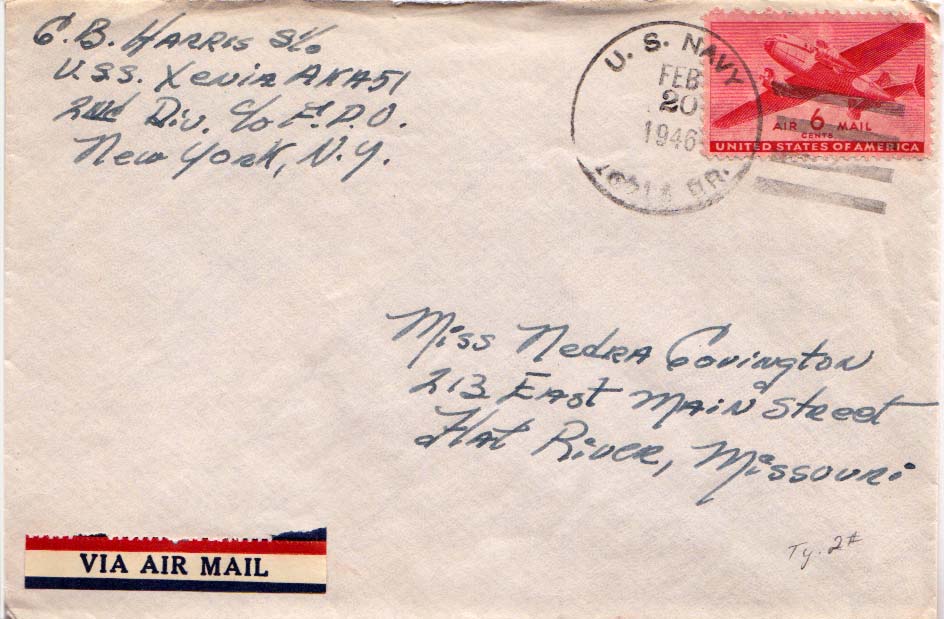 C.B. Harris S1/c
U.S.S. Xenia AKA51
2nd Div. c/o F.P.O.
New York, N.Y.
U. S. NAVY
FEB
20
1946
BR.
AIR 6 MAIL
CENTS
UNITED STATES OF AMERICA
Miss Nedra Covington
213 East Main Street
Flat River, Missouri
VIA AIR MAIL
Ty. 2